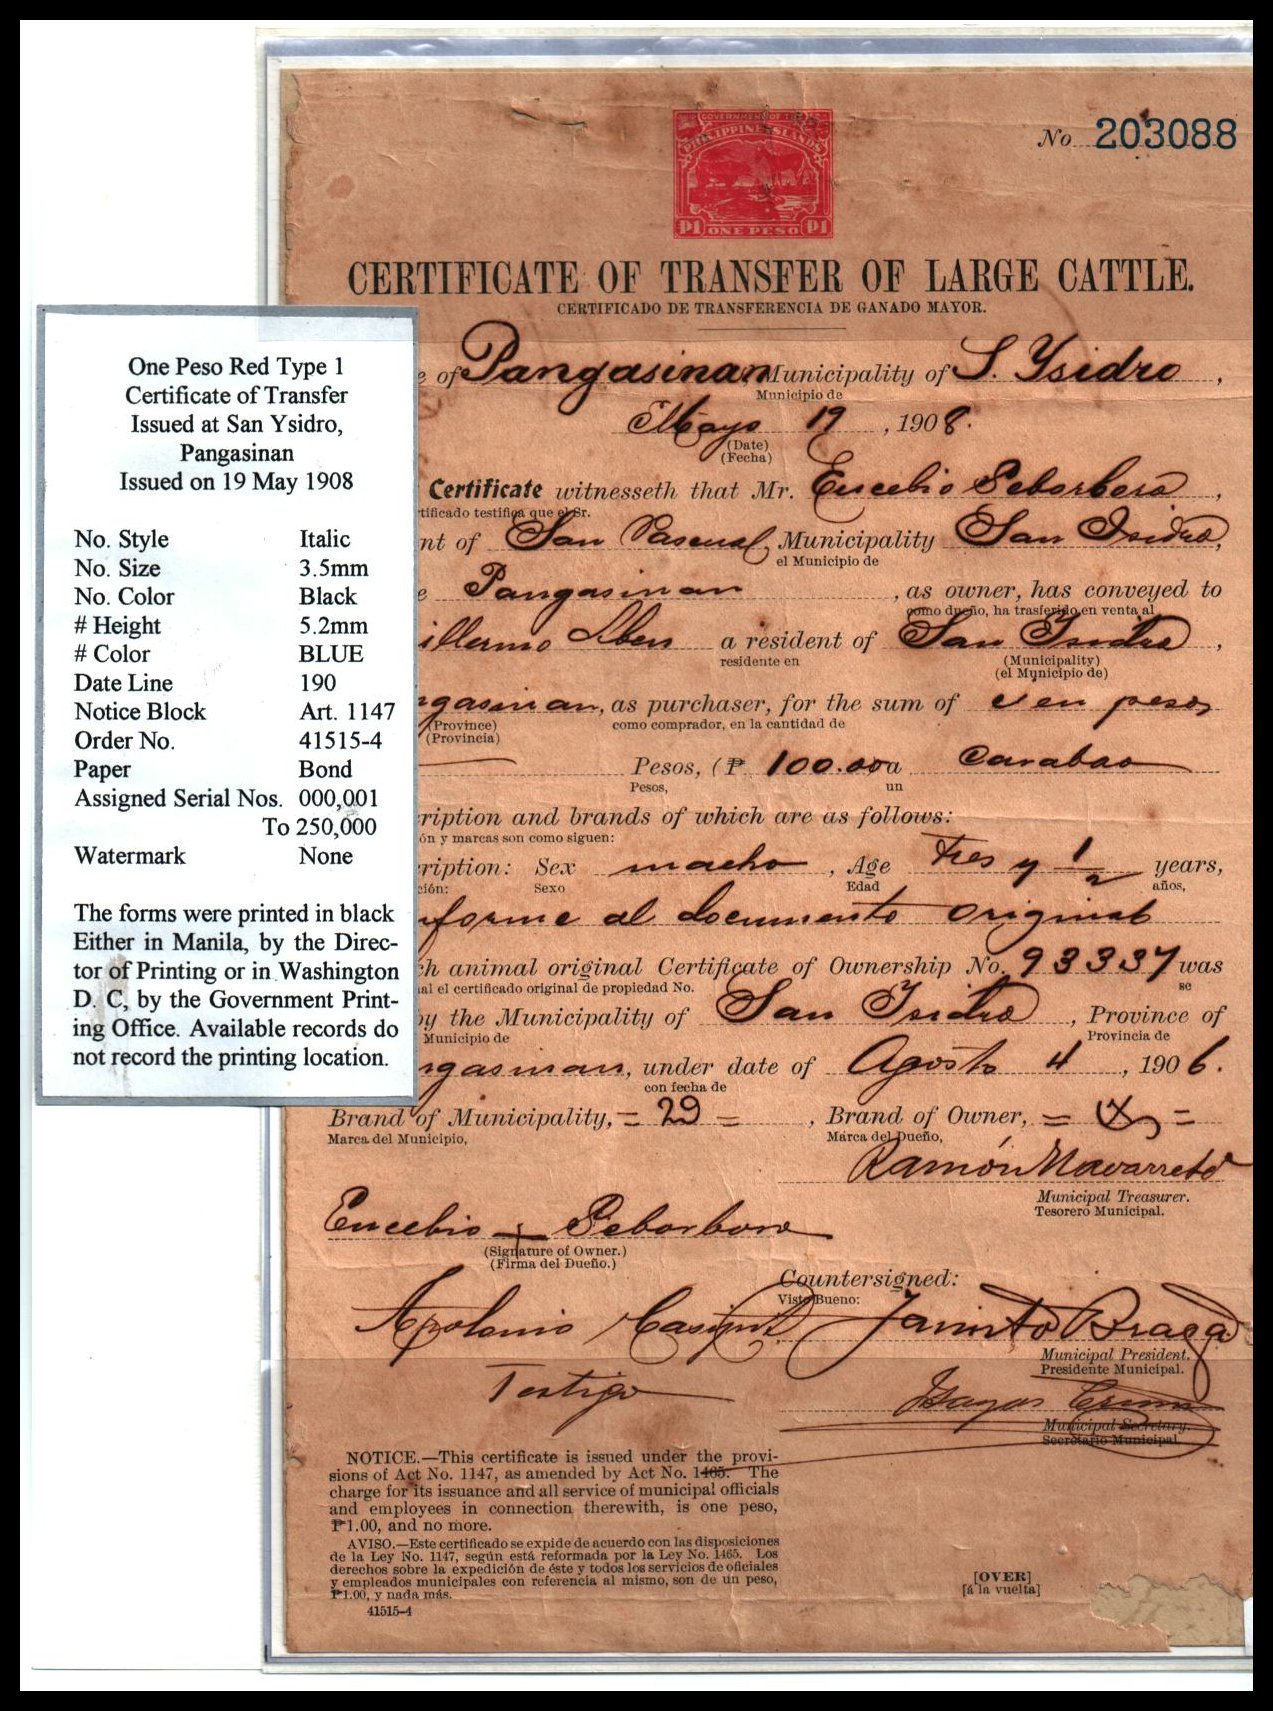 GOVERNMENT OF THE
PHILIPPINE ISLANDS
P1 ONE PESO P1
No. 203088
CERTIFICATE OF TRANSFER OF LARGE CATTLE.
CERTIFICADO DE TRANSFERENCIA DE GANADO MAYOR.
of Pangasinan Municipality of S. Ysidro,
Municipio de
Mayo 19, 1908.
(Date)
(Fecha)
Certificate witnesseth that Mr. Eucebio Seborbera,
tificado testifica que el Sr.
nt of San Pascual, Municipality San Isidro,
el Municipio de
e Pangasinan, as owner, has conveyed to
como dueño, ha trasferido en venta al
illermo a resident of San Isidro,
residente en (Municipality)
(el Municipio de)
ngasinan, as purchaser, for the sum of cien pesos
(Province) como comprador, en la cantidad de
(Provincia)
Pesos, (₱ 100.00 a carabao
Pesos, un
ription and brands of which are as follows:
ón y marcas son como siguen:
ription: Sex macho, Age tres y 1/2 years,
ción: Sexo Edad años,
nforme al documento original
ch animal original Certificate of Ownership No. 93337 was
al el certificado original de propiedad No. se
by the Municipality of San Isidro, Province of
Municipio de Provincia de
ngasinan, under date of Agosto 4, 1906.
con fecha de
Brand of Municipality, = 29 =, Brand of Owner, = =
Marca del Municipio, Marca del Dueño,
Ramón Navarrete
Municipal Treasurer.
Tesorero Municipal.
Eucebio + Seborbera
(Signature of Owner.)
(Firma del Dueño.)
Countersigned:
Visto Bueno:
Apolonio Jacinto Braga
Municipal President.
Presidente Municipal.
Testigo
Municipal Secretary.
Secretario Municipal.
NOTICE.—This certificate is issued under the provi-
sions of Act No. 1147, as amended by Act No. 1465. The
charge for its issuance and all service of municipal officials
and employees in connection therewith, is one peso,
₱1.00, and no more.
AVISO.—Este certificado se expide de acuerdo con las disposiciones
de la Ley No. 1147, según está reformada por la Ley No. 1465. Los
derechos sobre la expedición de éste y todos los servicios de oficiales
y empleados municipales con referencia al mismo, son de un peso,
₱1.00, y nada más.
41515-4
[OVER]
[á la vuelta]
One Peso Red Type 1
Certificate of Transfer
Issued at San Ysidro,
Pangasinan
Issued on 19 May 1908
No. Style Italic
No. Size 3.5mm
No. Color Black
# Height 5.2mm
# Color BLUE
Date Line 190
Notice Block Art. 1147
Order No. 41515-4
Paper Bond
Assigned Serial Nos. 000,001
To 250,000
Watermark None
The forms were printed in black
Either in Manila, by the Direc-
tor of Printing or in Washington
D. C, by the Government Print-
ing Office. Available records do
not record the printing location.